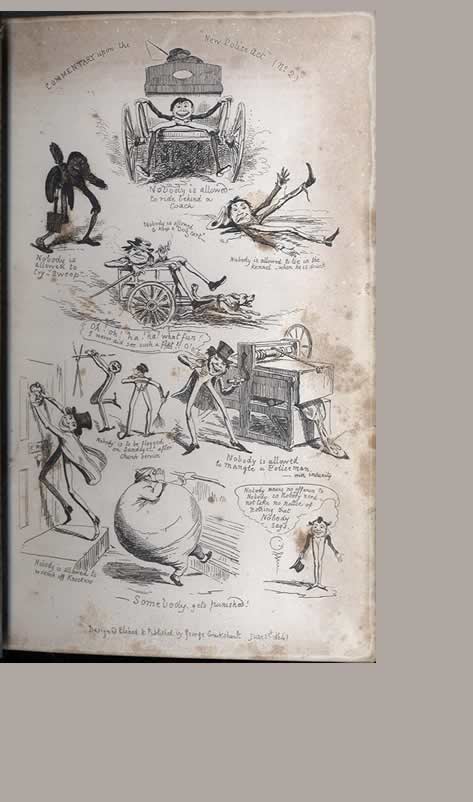 COMMENTARY upon the "New Police Act" (No 2)
Nobody is allowed
to ride behind a
Coach
Nobody is
allowed to
cry "Sweep"
Nobody is allowed
to keep a "Dog Cart"
Nobody is allowed to lie in the
Kennel when he is drunk
Oh! oh! ha! ha! what fun!
I never did see such a
Nobody is to be flogged
on Sundays after
Church Service
Nobody is allowed
to mangle a Policeman
with impunity
Nobody is allowed to
wrench off Knockers
Nobody means no offence to
Nobody, so Nobody need
not take no notice of
Nothing that
Nobody
says.
Somebody gets punished!
Designed Etched & Published by George Cruikshank